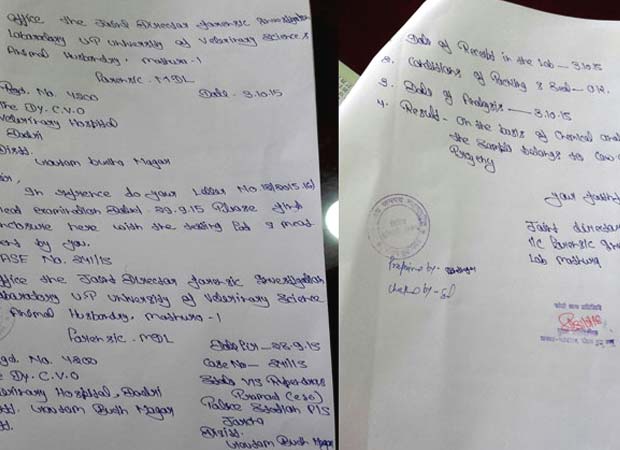 Office the Joint Director Forensic Investigation
Laboratory U.P University of Veterinary Science &
Animal Husbandry, Mathura-1
Forensic - MDL
Regt. No. 4200 Date - 3.10.15
The Dy. C.V.O
Veterinary Hospital
Dadri
Distt.
Gautam Budha Nagar
Sir,
In reference to your Letter No
meat examination Dated. 29.9.15 Please find
enclosure here with the testing for & meat
sent by you.
CASE No. 241/15
Office the Joint Director Forensic Investigation
Laboratory U.P University of Veterinary Science
Animal Husbandry, Mathura-1
Forensic - MDL
Regt. No. 4200
The Dy. C.V.O
Veterinary Hospital, Dadri
Distt. Gautam Budh Nagar
28.9.15
Case No - 241/15
State V/S
Police Station P/S
Jarcha
Distt.
Gautam Budh Nagar
Date of Receipt in the Lab - 3.10.15
2. Conditions of Packing & Seal - O.K.
3. Date of Analysis - 3.10.15
4. Result - On the basis of Chemical
the Sample belongs to Cow or
Progeny
Your faithf
Joint director
I/C Forensic
Lab Mathura
Prepared by -
Checked by -